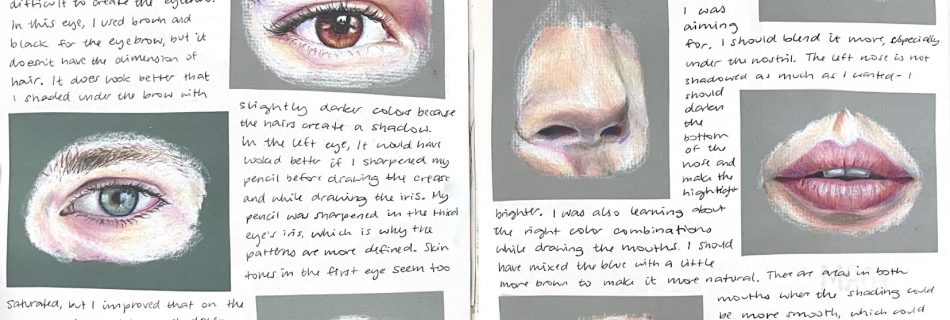 difficult to create the eyebrows.
In this eye, I used brown and
black for the eyebrow, but it
doesn't have the dimension of
hair. It does look better that
I shaded under the brow with
slightly darker colors because
the hairs create a shadow.
In the left eye, It would have
worked better if I sharpened my
pencil before drawing the crease
and while drawing the iris. My
pencil was sharpened in the third
eye's iris, which is why the
patterns are more defined. Skin
tones in the first eye seem too
saturated, but I improved that on the
I was
aiming
for. I should blend it more, especially
under the nostril. The left nose is not
shadowed as much as I wanted - I
should
darken
the
bottom
of the
nose and
make the
highlight
brighter. I was also learning about
the right color combinations
while drawing the mouths. I should
have mixed the blue with a little
more brown to make it more natural. There are areas in both
mouths where the shading could
be more smooth, which could